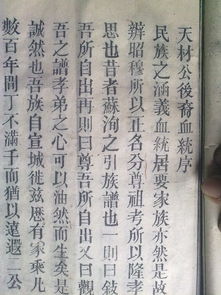 天材公後裔血統序
民族之涵義血統居要家族亦然是故
辨昭穆所以正名分尊祖考所以隆孝
思也昔者蘇洵之引族譜也一則曰敍
吾所自出再則曰尊吾所自出又曰觀
吾之譜孝弟之心可以油然而生矣是
誠然也吾族自宣城徙茲歷有家乘凡
數百年間丁不滿千而猶以遠遐二公